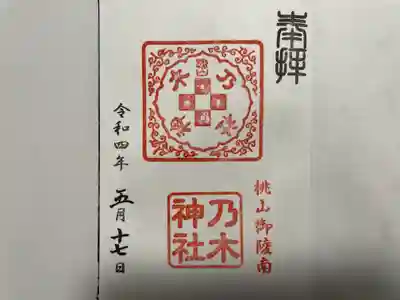 奉拝
桃山御陵南
乃木
神社
令和四年
五月十七日